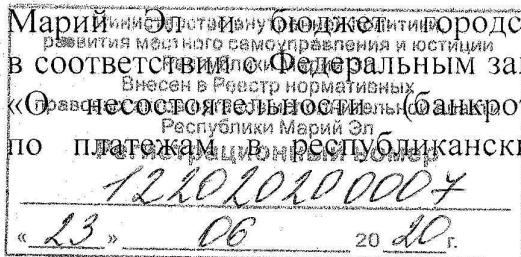 Марий Эл и бюджет городс
в соответствии с Федеральным за
«О несостоятельности (банкрот
по платежам в республиканск
Министерство внутренней политики,
развития местного самоуправления и юстиции
Республики Марий Эл
Внесен в Реестр нормативных
правовых
Республики Марий Эл
Регистрационный номер
122020200007
« 23 » 06 20 20 г.